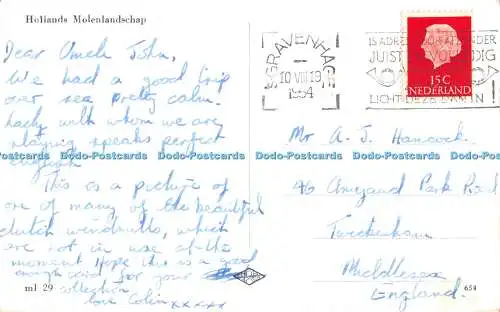 Hollands Molenlandschap
Dear Uncle John,
We had a good trip
over sea pretty calm.
Lady with whom we are
staying speaks perfect
english
This is a picture of
one of many of the beautiful
dutch windmills, which
are not in use at the
moment Hope this is a good
enough card for your
collection
love Colin xxxxx
ml 29
'S GRAVENHAGE
10 VIII 19
1954
IS ADRES
JUIST
LICHT DEZE DAN IN
15C
NEDERLAND
Mr A. J. Hancock
46 Park Road
Twickenham
Middlesex
England.
654
Dodo-Postcards Dodo-Postcards Dodo-Postcards Dodo-Postcards Dodo-Postcards Dodo-Postcards